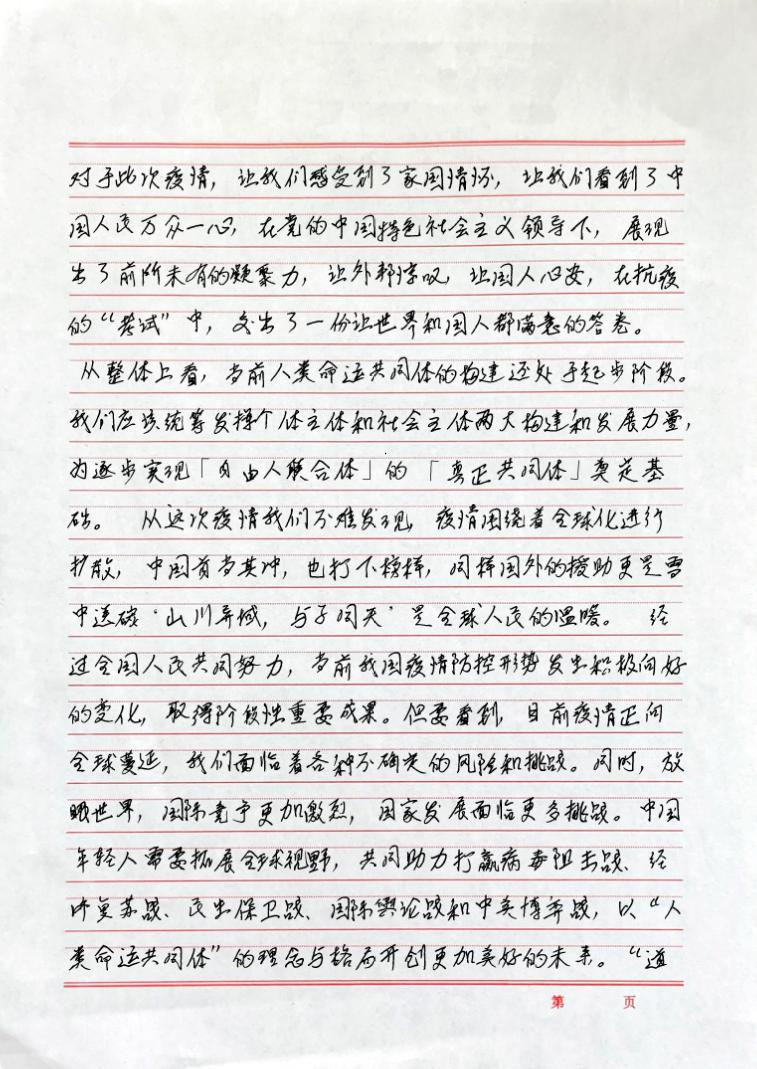 对于此次疫情，让我们感受到了家国情怀，让我们看到了中
国人民万众一心，在党的中国特色社会主义领导下，展现
出了前所未有的凝聚力，让外邦惊叹，让国人心安，在抗疫
的“考试”中，交出了一份让世界和国人都满意的答卷。
从整体上看，当前人类命运共同体的构建还处于起步阶段。
我们应该统筹发挥个体主体和社会主体两大构建和发展力量，
为逐步实现「自由人联合体」的「真正共同体」奠定基
础。 从这次疫情我们不难发现，疫情围绕着全球化进行
扩散，中国首当其冲，也打下榜样，同样国外的援助更是雪
中送碳‘山川异域，与子同天’是全球人民的温暖。 经
过全国人民共同努力，当前我国疫情防控形势发生积极向好
的变化，取得阶段性重要成果。但要看到，目前疫情正向
全球蔓延，我们面临着各种不确定的风险和挑战。同时，放
眼世界，国际竞争更加激烈，国家发展面临更多挑战。中国
年轻人需要拓展全球视野，共同助力打赢病毒阻击战、经
济复苏战、民生保卫战、国际舆论战和中美博弈战，以“人
类命运共同体”的理念与格局开创更加美好的未来。“道
第 页